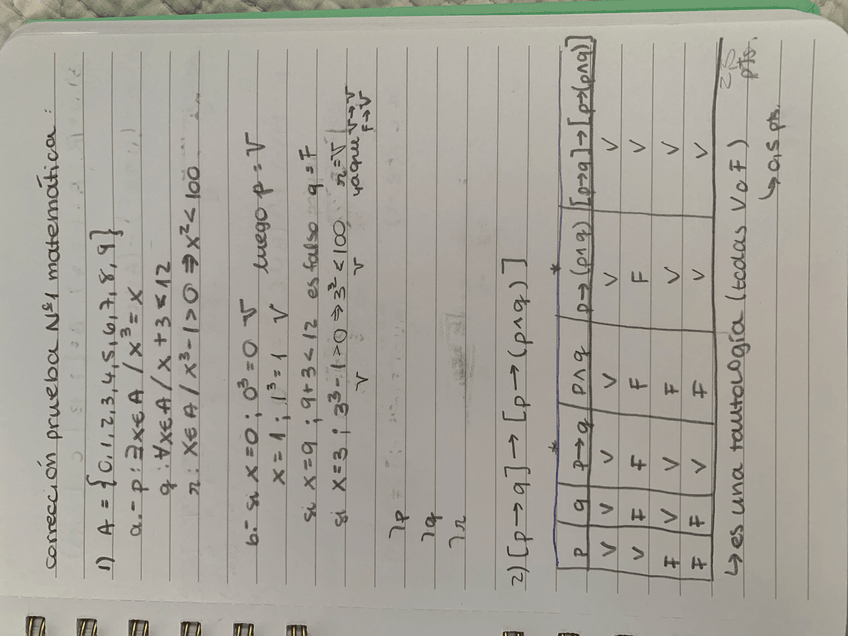 corrección prueba Nº1 matemática:
1) A = {0,1,2,3,4,5,6,7,8,9}
a.- p: ∃x∈A / x³ = x
q: ∀x∈A / x + 3 < 12
r: x∈A / x³-1 > 0 ⇒ x² < 100
b.- si x=0; 0³=0 V
x=1; 1³=1 V luego p = V
si x=9; 9+3<12 es falso q = F
si x=3; 3³-1>0 ⇒ 3² < 100 r = V
V V yaque V→V
F→V
¬p
¬q
¬r
2) [p→q] → [p→(p∧q)]
p q p→q p∧q p→(p∧q) [p→q]→[p→(p∧q)]
V V V V V V
V F F F F V
F V V F V V
F F V F V V
↳ es una tautología (todas V o F)
↳ 0,5 pts.
pts.